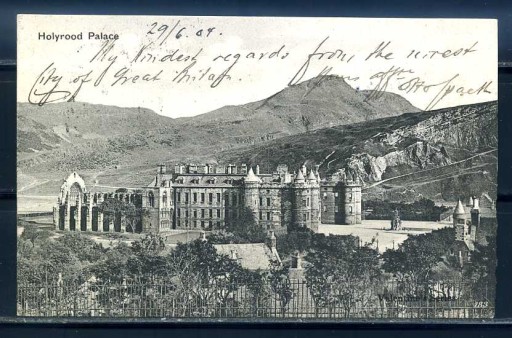 Holyrood Palace
29/6.04.
My kindest regards from the nicest
City of Great Britain. Yours
Otto
183